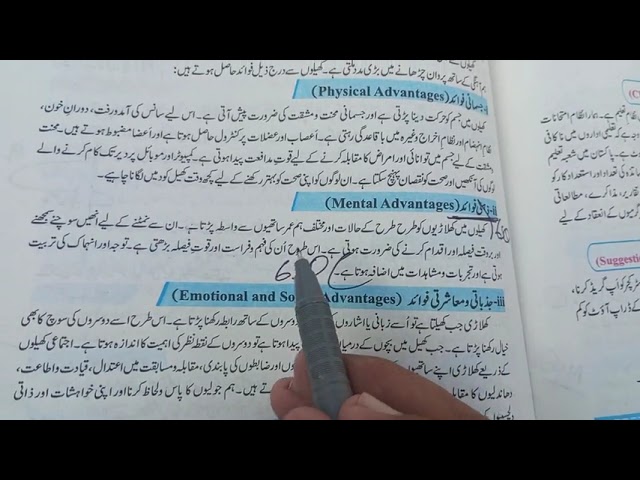 ہم آہنگی کے ساتھ پروان چڑھانے میں بڑی مدد ملتی ہے۔ کھیلوں سے درج ذیل فوائد حاصل ہوتے ہیں:
i-جسمانی فوائد (Physical Advantages)
کھیلوں میں جسم کو حرکت دینا پڑتی ہے اور جسمانی محنت و مشقت کی ضرورت پیش آتی ہے۔ اس لیے سانس کی آمدورفت، دورانِ خون،
نظامِ انہضام اور نظامِ اخراج وغیرہ میں باقاعدگی رہتی ہے۔ اعصاب اور عضلات پر کنٹرول حاصل ہوتا ہے اور اعضا مضبوط ہوتے ہیں۔ محنت
و مشقت کے لیے جسم میں توانائی اور امراض کا مقابلہ کرنے کے لیے قوتِ مدافعت پیدا ہوتی ہے۔ کمپیوٹر اور موبائل پر دیر تک کام کرنے والے
لوگوں کی آنکھیں اور صحت کو نقصان پہنچ سکتا ہے۔ ان لوگوں کو اپنی صحت کو بہتر رکھنے کے لیے کچھ وقت کھیل کود میں لگانا چاہیے۔
ii-ذہنی فوائد (Mental Advantages)
کھیلوں میں کھلاڑیوں کو طرح طرح کے حالات اور مختلف ہم عمر ساتھیوں سے واسطہ پڑتا ہے۔ ان سے نمٹنے کے لیے انھیں سوچنے سمجھنے
اور بروقت فیصلہ اور اقدام کرنے کی ضرورت ہوتی ہے۔ اس طرح اُن کی فہم و فراست اور قوتِ فیصلہ بڑھتی ہے۔ توجہ اور انہماک کی تربیت
ہوتی ہے اور تجربات و مشاہدات میں اضافہ ہوتا ہے۔
iii-جذباتی و معاشرتی فوائد (Emotional and So Advantages)
کھلاڑی جب کھیلتا ہے تو اُسے زبانی یا اشاروں دوسروں کے ساتھ رابطہ رکھنا پڑتا ہے۔ اس طرح اسے دوسروں کی سوچ کا بھی
خیال رکھنا پڑتا ہے۔ جب کھیل میں بچوں کے درمیان پیدا ہوتا ہے تو دوسروں کے نقطہ نظر کی اہمیت کا اندازہ ہوتا ہے۔ اجتماعی کھیلوں
کے ذریعے کھلاڑی اپنے ساتھیوں اور ضابطوں کی پابندی، مقابلہ و مسابقت میں اعتدال، قیادت و اطاعت،
دھاندلیوں کا مقابلہ ہیں۔ ہم جولیوں کا پاس و لحاظ کرنا اور اپنی خواہشات اور ذاتی
دلچسپیوں
نظام تعلیم ہے۔ ہمارا نظام امتحانات
ہے۔ پاکستان میں شعبہ تعلیم
(Suggestio